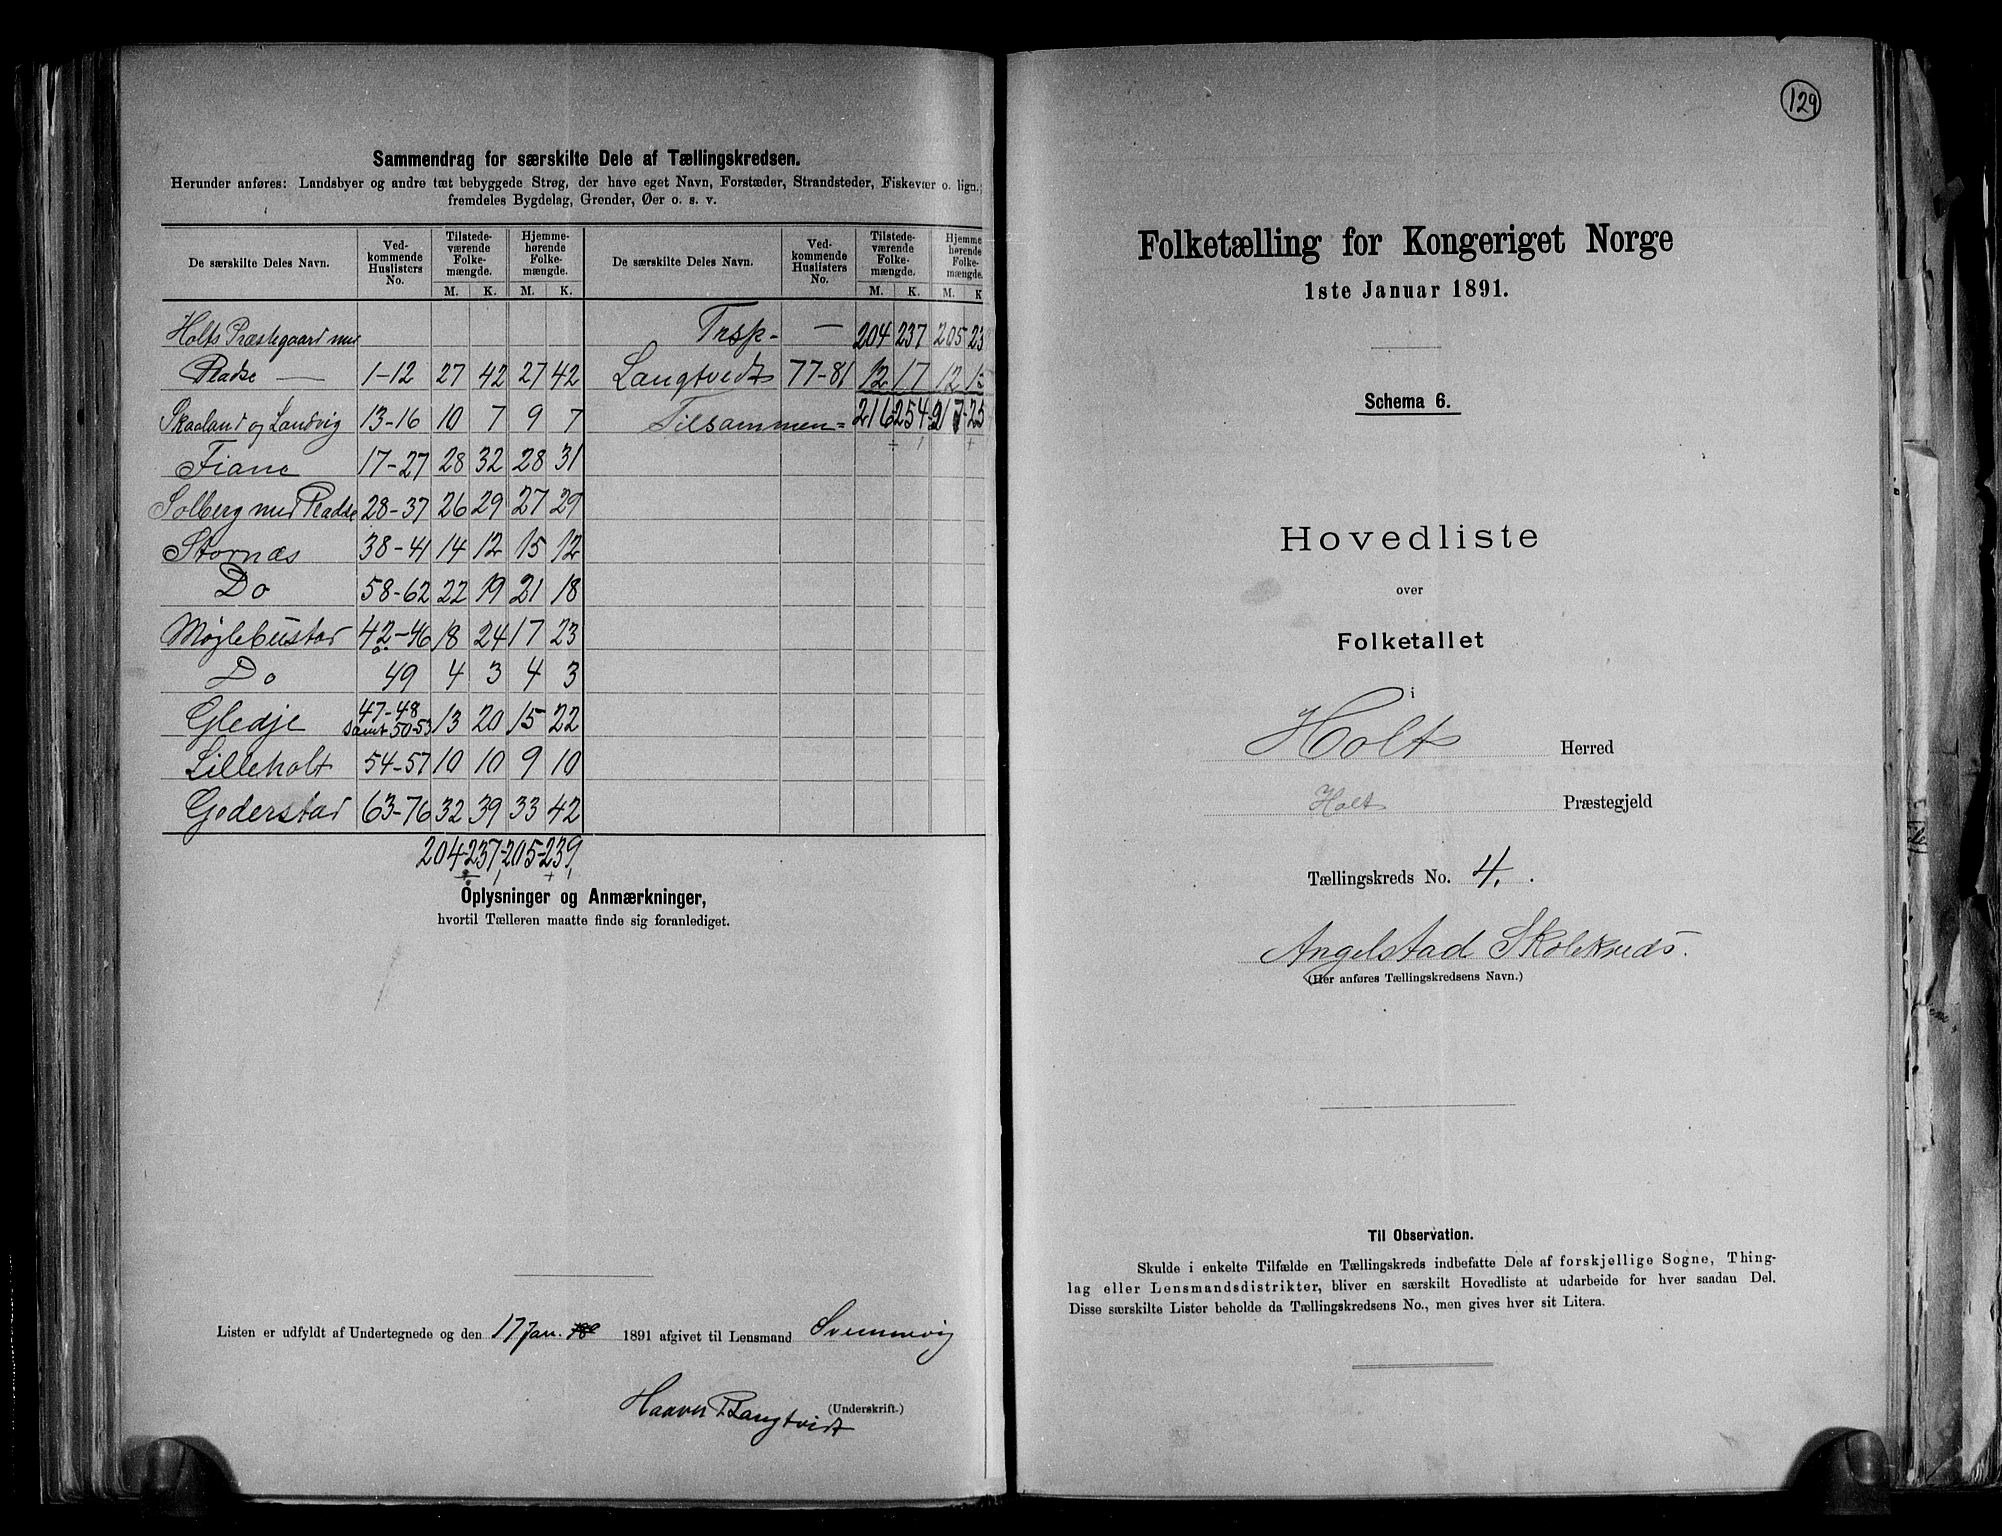 Sammendrag for særskilte Dele af Tællingskredsen.
Herunder anføres: Landsbyer og andre tæt bebyggede Strøg, der have eget Navn, Forstæder, Strandsteder, Fiskevær o. lign.;
fremdeles Bygdelag, Grender, Øer o. s. v.
De særskilte Deles Navn. Ved-kommende Huslisters No. Tilstede-værende Folke-mængde. Hjemme-hørende Folke-mængde. De særskilte Deles Navn. Ved-kommende Huslisters No. Tilstede-værende Folke-mængde. Hjemme-hørende Folke-mængde.
M. K. M. K. M. K. M. K
Holts Præstegaard med Trsp- — 204 237 205 23
Pladse — 1-12 27 42 27 42 Langtvedt 77-81 12 17 12 15
Skaaland og Landvig 13-16 10 7 9 7 Tilsammen = 216 254 217 25
Fiane 17-27 28 32 28 31
Solberg med Pladse 28-37 26 29 27 29
Stornæs 38-41 14 12 15 12
Do 58-62 22 19 21 18
Møglebustad 42-46 18 24 17 23
Do 49 4 3 4 3
Gledje 47-48 samt 50-53 13 20 15 22
Lilleholt 54-57 10 10 9 10
Goderstad 63-76 32 39 33 42
204-237-205-239
Oplysninger og Anmærkninger,
hvortil Tælleren maatte finde sig foranlediget.
Listen er udfyldt af Undertegnede og den 17 Jan. 1891 afgivet til Lensmand Svennevig
Haaver T Langtvidt
(Underskrift.)
129
Folketælling for Kongeriget Norge
1ste Januar 1891.
Schema 6.
Hovedliste
over
Folketallet
i
Holt Herred
Holt Præstegjeld
Tællingskreds No. 4.
Angelstad Skolekreds.
(Her anføres Tællingskredsens Navn.)
Til Observation.
Skulde i enkelte Tilfælde en Tællingskreds indbefatte Dele af forskjellige Sogne, Thing-
lag eller Lensmandsdistrikter, bliver en særskilt Hovedliste at udarbeide for hver saadan Del.
Disse særskilte Lister beholde da Tællingskredsens No., men gives hver sit Litera.